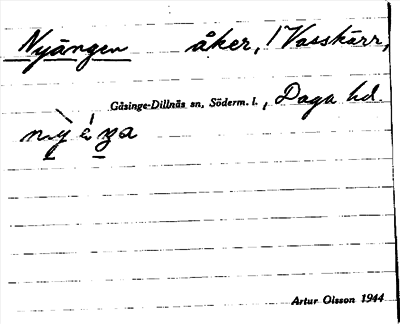 Nyängen åker, Vasskärr,
Gåsinge-Dillnäs sn, Söderm. l., Daga hd.
Artur Olsson 1944